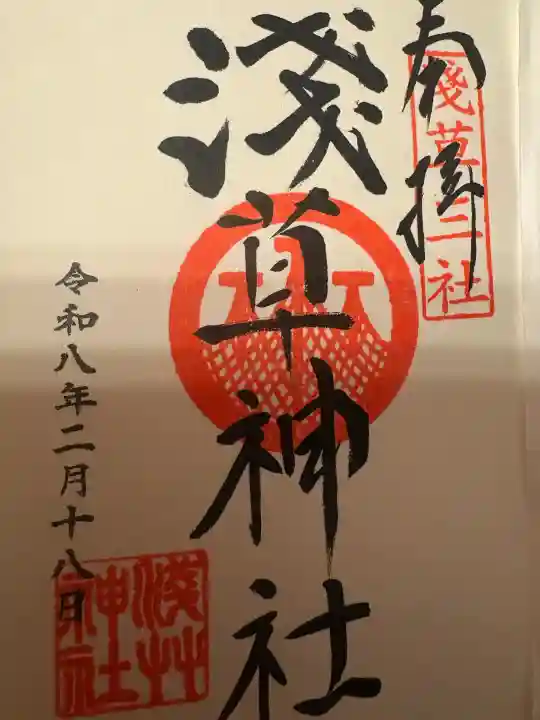 奉拝
淺草三社
淺草神社
令和八年二月十八日
淺草
神社